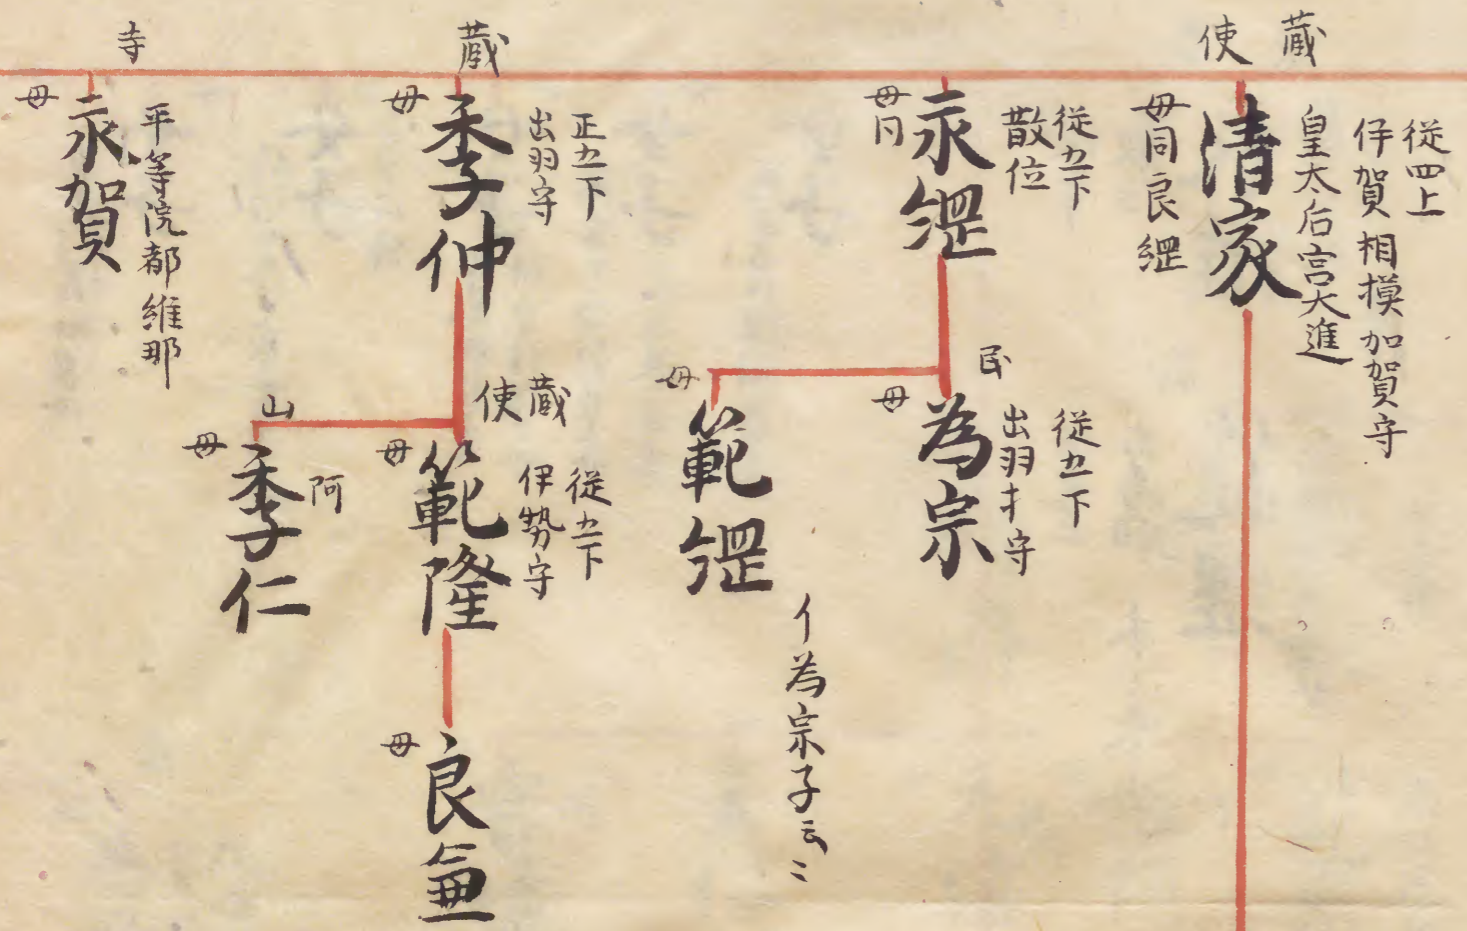 蔵
使
従四上
伊賀相模加賀守
皇太后宮大進
清家
母同良綱
従五下
散位
永綱
母同
民
従五下
出羽才守
為宗
母
範綱
母
イ為宗子云〻
蔵
正五下
出羽守
季仲
母
蔵
使
従五下
伊勢守
範隆
母
良兼
母
山
阿
季仁
母
寺
平等院都維那
永賀
母